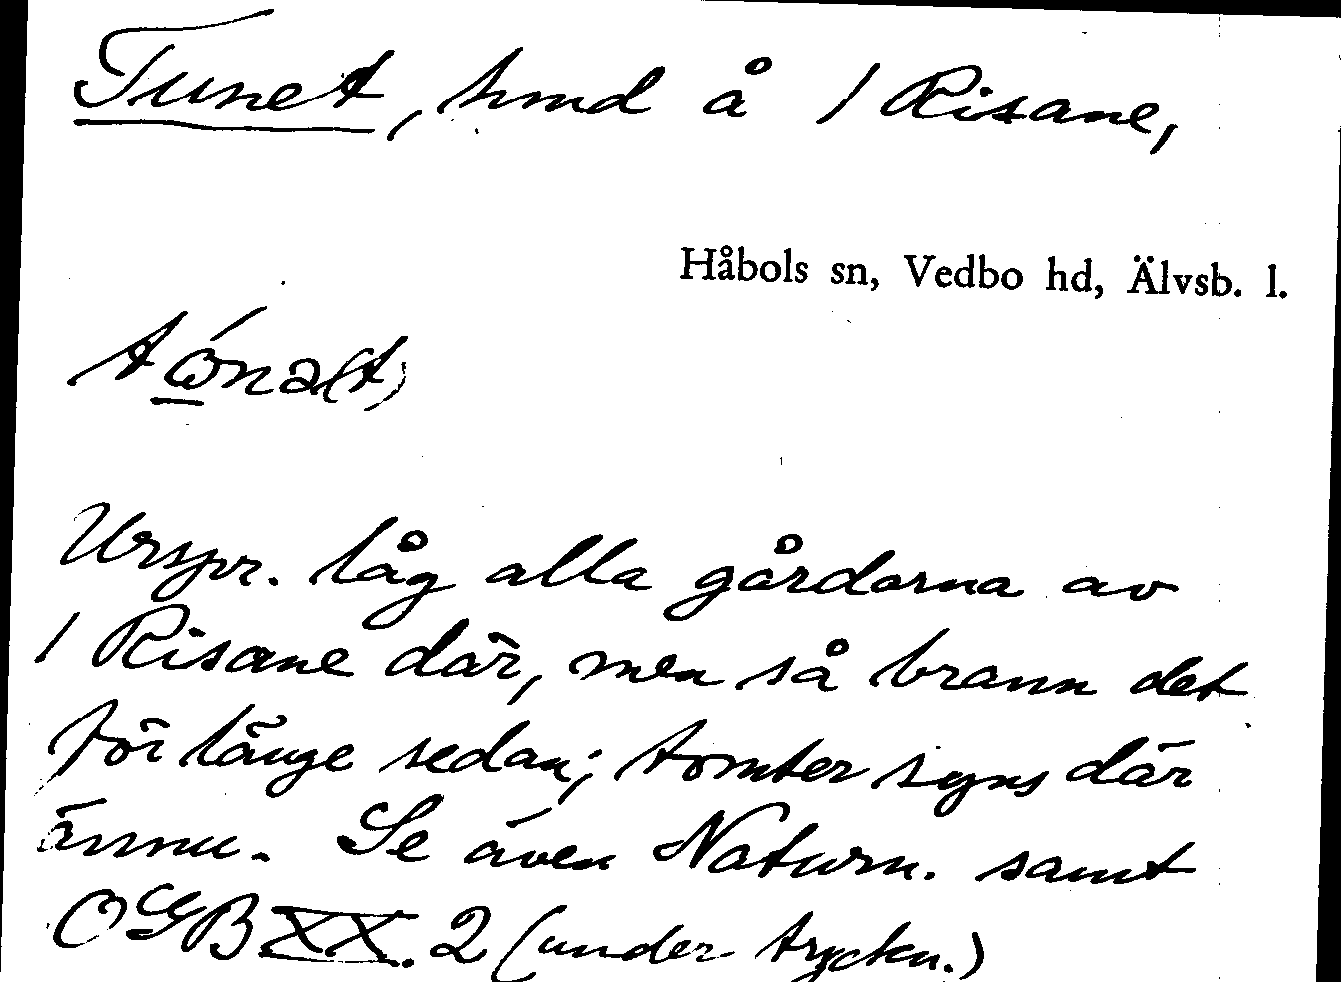 Tunet, hmd å 1 Risane,
Håbols sn, Vedbo hd, Älvsb. l.
Urspr. låg alla gårdarna av
1 Risane där, men så brann det
för länge sedan; tomter syns där
ännu. Se även Naturn. samt
OGB XX. 2 (under tryckn.)